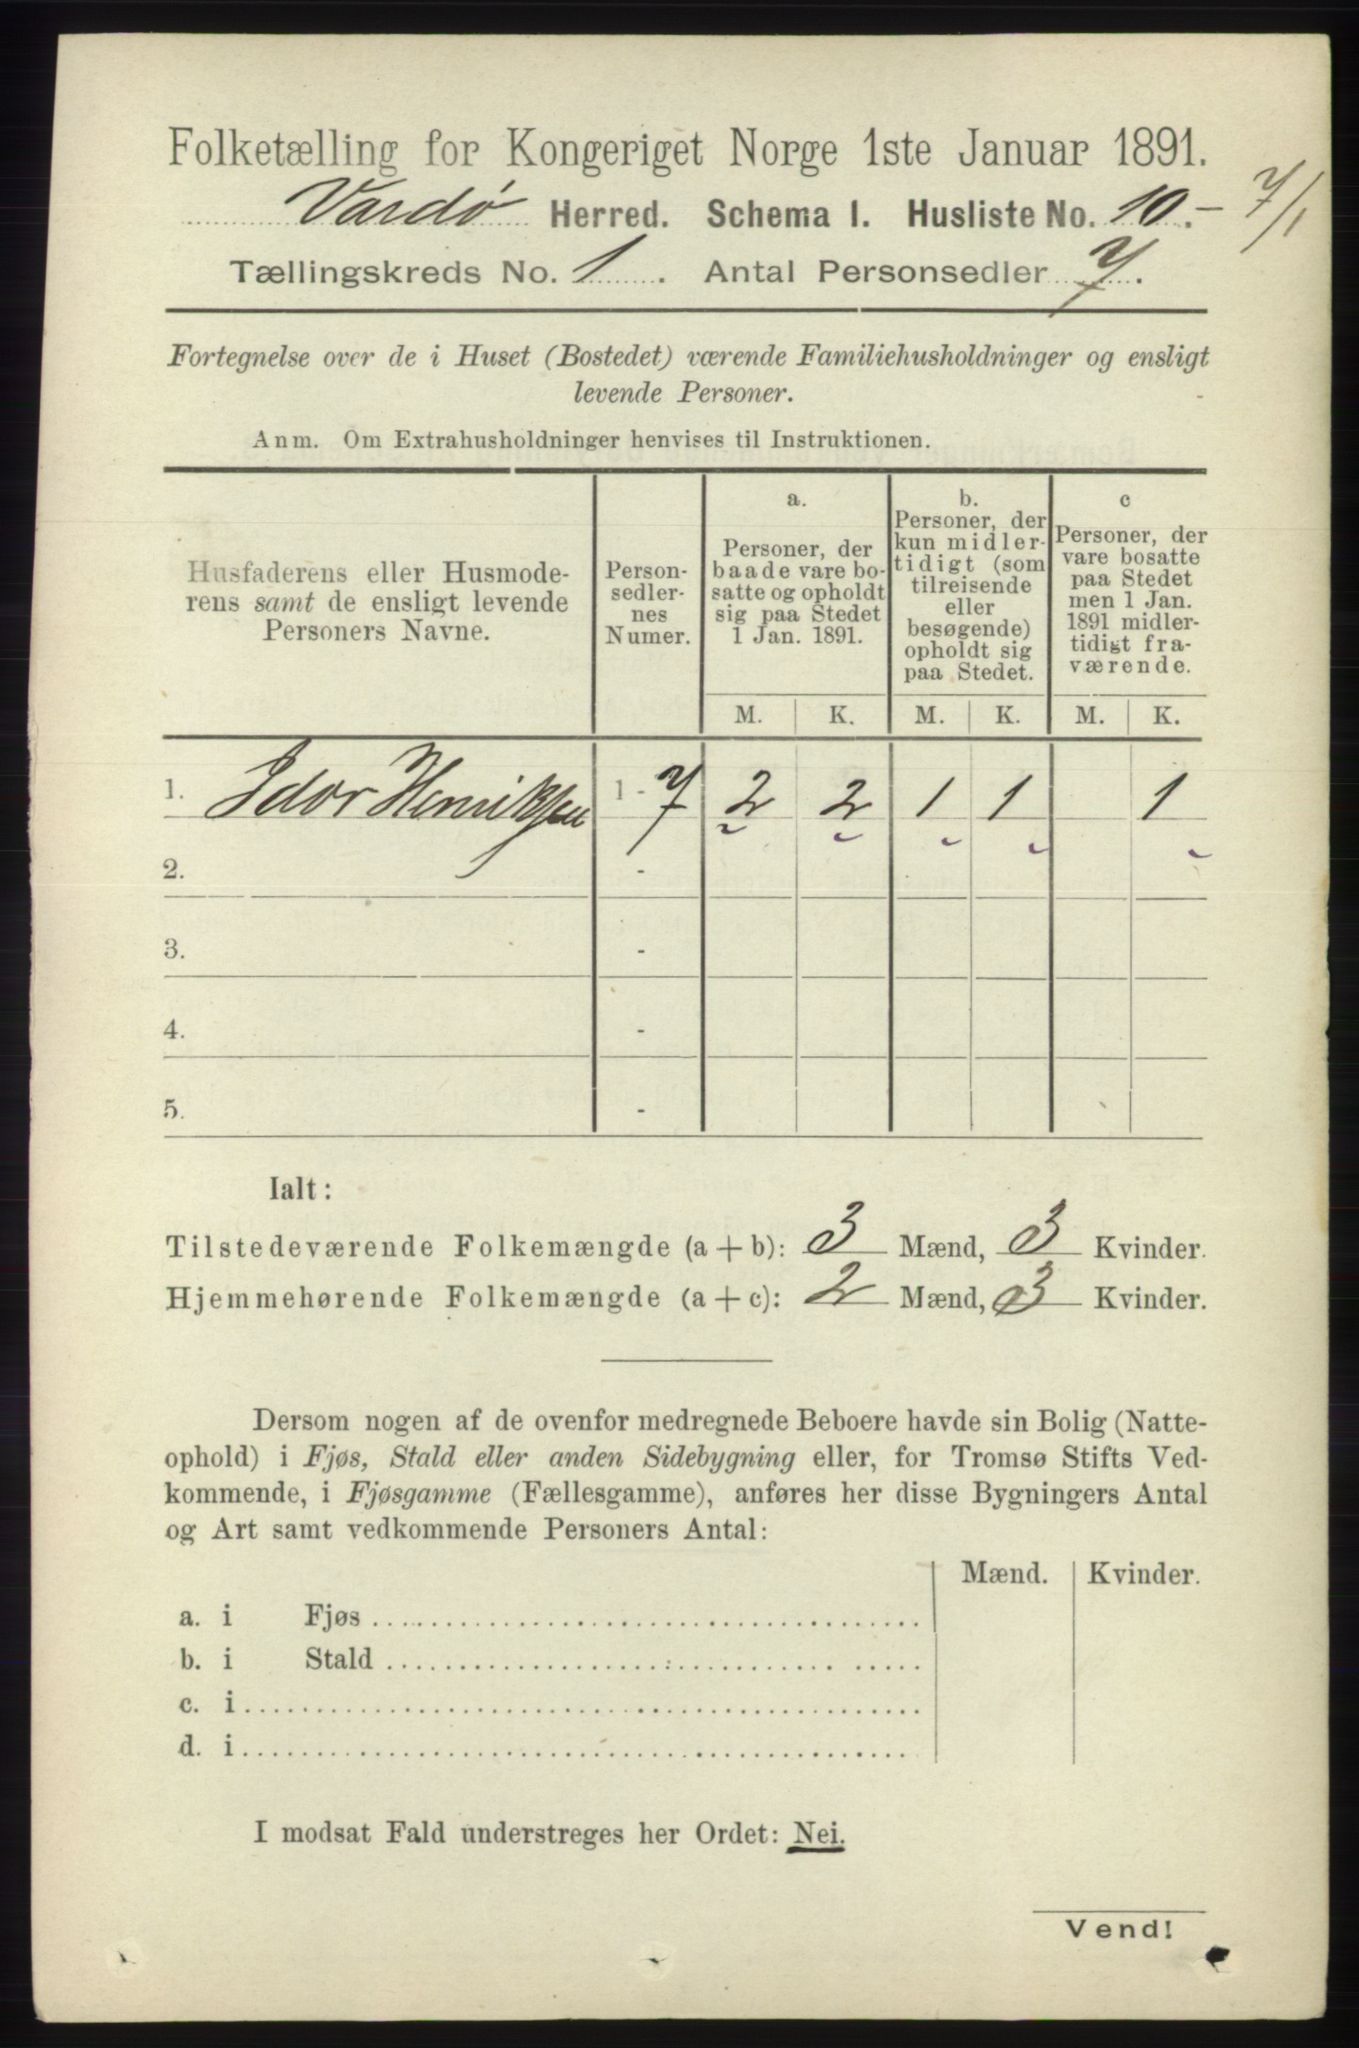 Folketælling for Kongeriget Norge 1ste Januar 1891.
Vardø Herred. Schema I. Husliste No. 10.- 7/1
Tællingskreds No. 1. Antal Personsedler 7.
Fortegnelse over de i Huset (Bostedet) værende Familiehusholdninger og ensligt
levende Personer.
Anm. Om Extrahusholdninger henvises til Instruktionen.
Husfaderens eller Husmode-
rens samt de ensligt levende
Personers Navne.
Person-
sedler-
nes
Numer.
a.
Personer, der
baade vare bo-
satte og opholdt
sig paa Stedet
1 Jan. 1891.
b.
Personer, der
kun midler-
tidigt (som
tilreisende
eller
besøgende)
opholdt sig
paa Stedet.
c
Personer, der
vare bosatte
paa Stedet
men 1 Jan.
1891 midler-
tidigt fra-
værende.
M. K. M. K. M. K.
1. Idor Henriksen 1 - 7 2 2 1 1 1
2. -
3. -
4. -
5. -
Ialt:
Tilstedeværende Folkemængde (a + b): 3 Mænd, 3 Kvinder.
Hjemmehørende Folkemængde (a + c): 2 Mænd, 3 Kvinder.
Dersom nogen af de ovenfor medregnede Beboere havde sin Bolig (Natte-
ophold) i Fjøs, Stald eller anden Sidebygning eller, for Tromsø Stifts Ved-
kommende, i Fjøsgamme (Fællesgamme), anføres her disse Bygningers Antal
og Art samt vedkommende Personers Antal:
Mænd. Kvinder.
a. i Fjøs
b. i Stald
c. i
d. i
I modsat Fald understreges her Ordet: Nei.
Vend!